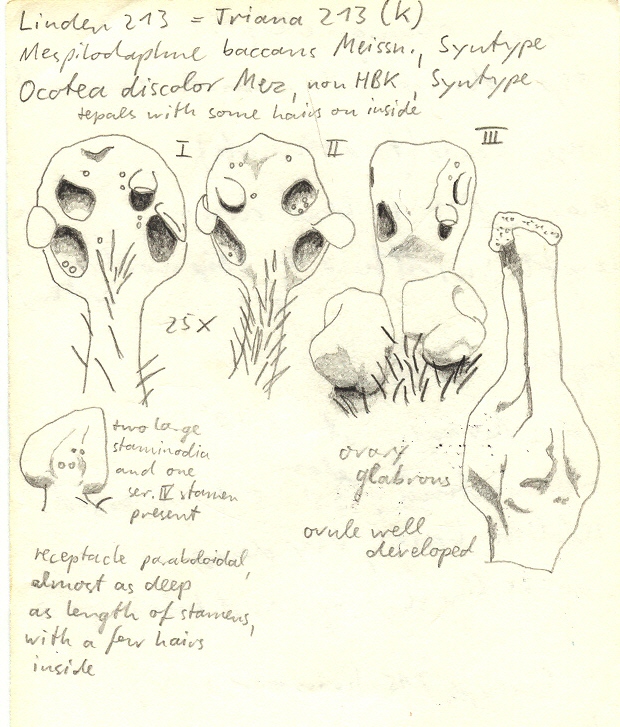 Linden 213 = Triana 213 (K)
Mespilodaphne baccans Meissn., Syntype
Ocotea discolor Mez, non HBK, Syntype
tepals with some hairs on inside
I
II
III
25 x
two large
staminodia
and one
ser. IV stamen
present
ovary
glabrous
ovule well
developed
receptacle paraboloidal,
almost as deep
as length of stamens,
with a few hairs
inside